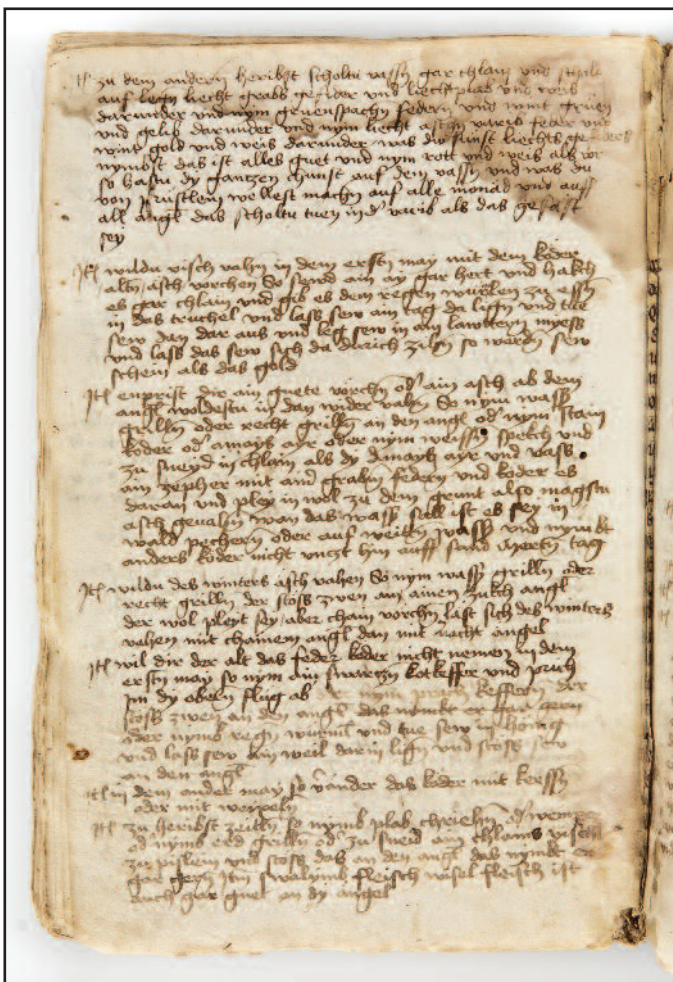 Itē zu dem andern heribst scholtu vassn gar chlain und
auf legn liecht grabs gefider und liecht plab und weis
darunder und nym gruenspachn federn und wint gruen
und gelb darunder und nym liecht aschn varib feder und
wint gold und weis darunder was du sunst liechts gefiders
nymbst das ist alles guet und nym rott und weis als vor
so hastu dy gantzen chunst auf dem vassn und was du
von prustlein wellest machn auf alle moniad und auff
all angl das scholtu tuen in d' varib als das gefast
sey
Itē wildu visch vahn in dem erstn may mit dem koder
altn asch vorchen So sewd ain ay gar hert und hakch
es gar chlain und gib es dem regen wurbm zu essn
in das truchel und lass sew ain tag da lign und tue
sew dan dar aus und leg sew in ain lawttern myess
und lass das sew sich da durich zihn so werdn sew
schein als das gold
Itē enprist dir ain guete vorchn od' ain asch ab dem
angl woldestu in dan wider vahn So nym wassˀ
grilln oder recht grilln an den angl od' nym stain
koder od' amays ayr oder nym weissn spekch und
zu sneyd in chlain als dy amays ayr und vass
ain zepher mit aim grabm federn und koder es
daran und pley in wol zu dem grunt also magstu
asch gevahn wan das wassˀ still ist es sey in
wald pechern oder auf weittn wassˀ und nymbt
anders koder nicht vnczt hin auff sand mertn tag
Itē wildu des winters asch vahen So nym wassˀ grilln oder
recht grilln der stoss zwen an ainen angl
der wol pleyt sey aber chain vorchn last sich des winters
vahen mit chainem angl dan mit nacht angel
Itē wil dir der alt das feder koder nicht nemen in dem
erstn may so nym ain swarczn kotkeffer und prich
im dy obern flug ab nym keffern der
stoss zwen an den angl das nimbt er gar gern
oder nymb regn wurmˀ und tue sew in honig
und lass sew ain weil darin lign und stoss sew
an den angl
Itē in dem ander may so vˀander das koder mit kerssn
oder mit weixeln
Itē zu heribst zeittn so nymb plab od'
od' nymb erd grilln od' zu sneid ain chlains vischl
zu pislein und stoss das an den angl das nymbt er
gar gern Itm swalymb fleisch wisel fleisch ist
auch gar guet an dy angel